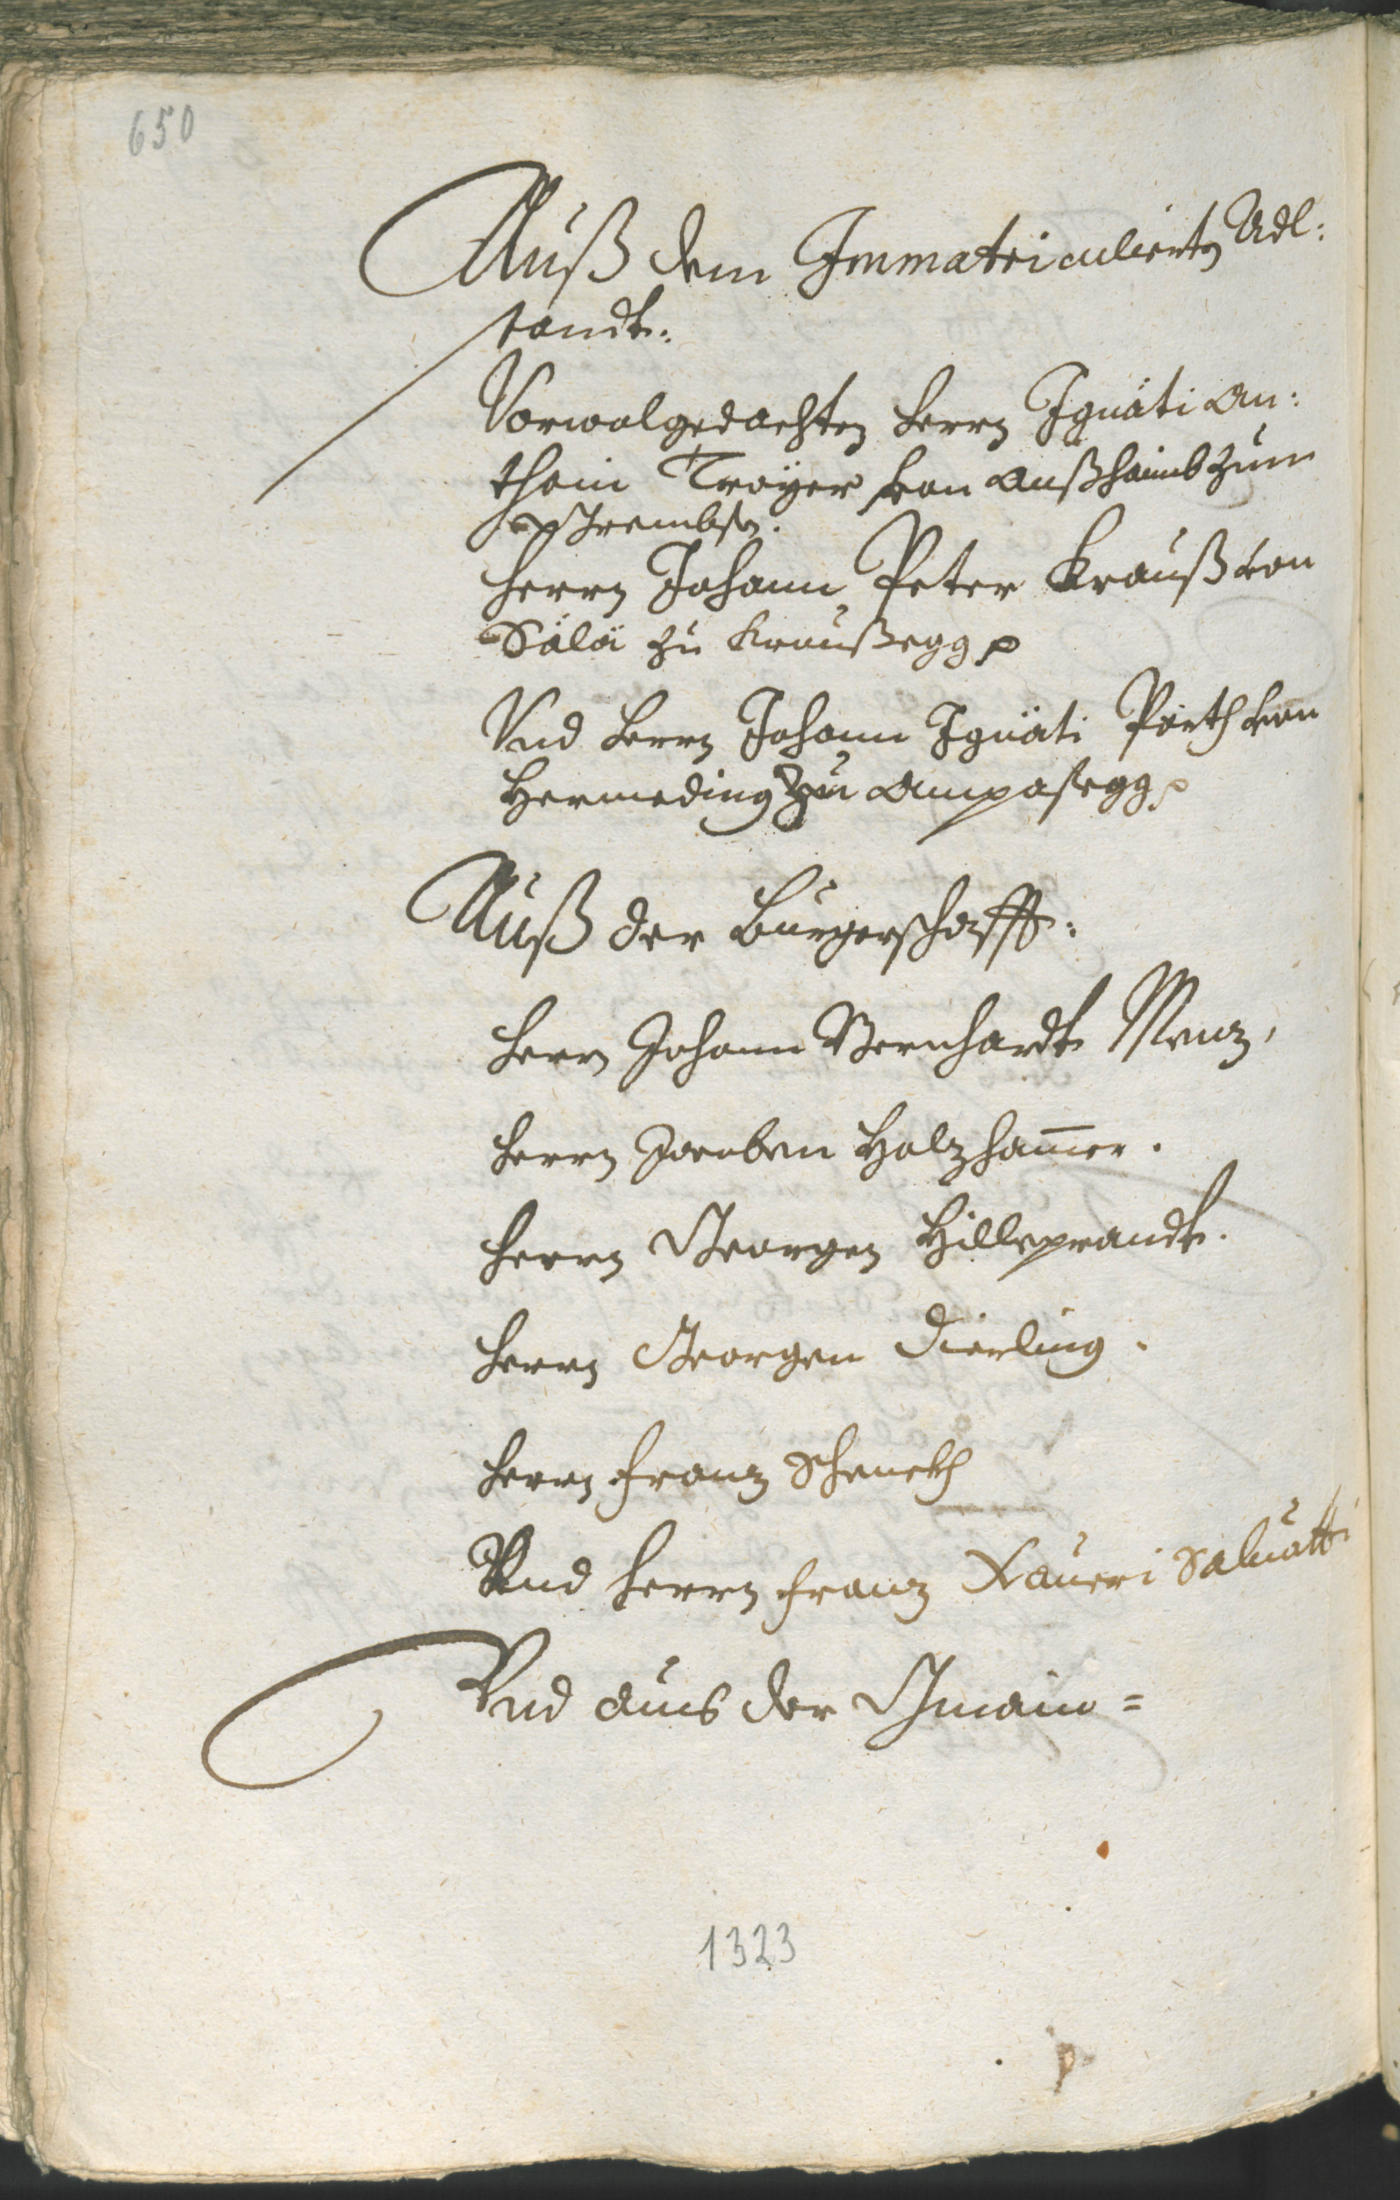 650
Auß dem Immatriculierten Adl:
standt:
Vorwolgedachten Herrn Ignäti An:
thoni Troyer von Außhaimb zum
Herrn Johann Peter Krauß von
Sälä zu Kraußegg
Vnd Herrn Johann Ignäti Pärth von
Hermeding zu Ampassegg
Auß der Burgerschafft:
Herrn Johann Bernhardt Menz,
Herrn Jacoben Holzhamer.
Herrn Georgen Hilleprandt.
Herrn Georgen Dierling.
Herrn Franz Schenckh
Vnd Herrn Franz Xaueri Saluatti
Vnd aus der Gmain=
1323